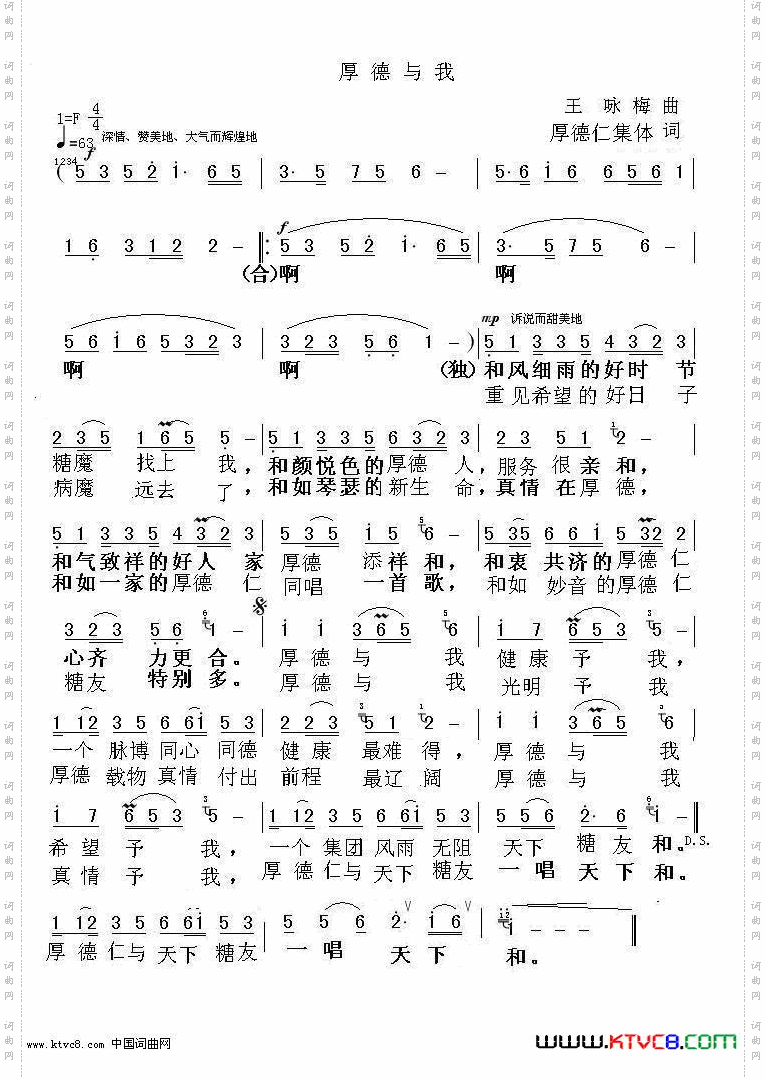 厚德与我
王 咏 梅 曲
1=F 4/4
厚德仁集体 词
♩=63 深情、赞美地、大气而辉煌地
f
1234
( 5 3 5 2 i· 6 5 | 3· 5 7 5 6 - | 5· 6 i 6 6 5 6 1 |
f
1 6 3 1 2 2 2 - |: 5 3 5 2 i· 6 5 | 3· 5 7 5 6 - |
(合)啊 啊
mp 诉说而甜美地
5 6 i 6 5 3 2 3 | 3 2 3 5 6 1 - ) | 5 1 3 3 5 4 3 2 3 |
啊 啊 (独) 和风细雨的好时 节
重见希望的好日 子
2 3 5 1 6 5 5 - | 5 1 3 3 5 6 3 2 3 | 2 3 5 1 2 - |
糖魔 找上 我, 和颜悦色的厚德 人, 服务 很 亲 和,
病魔 远去 了, 和如琴瑟的新生 命, 真情 在 厚 德,
5 1 3 3 5 4 3 2 3 | 5 3 5 i 5 6 - | 5 3 5 6 6 i 5 3 2 2 |
和气致祥的好人 家 厚德 添祥 和, 和衷 共济的厚德仁
和如一家的厚德 仁 同唱 一首 歌, 和如 妙音的厚德仁
3 2 3 5 6 1 - | i i 3 6 5 6 | i 7 6 5 3 5 - |
心齐 力更 合。 厚 德 与 我 健 康 予 我,
糖友 特别 多。 厚 德 与 我 光 明 予 我
1 1 2 3 5 6 6 i 5 3 | 2 2 3 5 1 2 - | i i 3 6 5 6 |
一个 脉博 同心 同德 健 康 最难 得, 厚 德 与 我
厚德 载物 真情 付出 前程 最辽 阔 厚 德 与 我
i 7 6 5 3 5 - | 1 1 2 3 5 6 6 i 5 3 | 5 5 6 2· 6 i - ‖
希 望 予 我, 一个 集团 风雨 无阻 天下 糖友 和。 D.S.
真 情 予 我, 厚德 仁与 天下 糖友 一唱 天下 和。
1 1 2 3 5 6 6 i 5 3 | 5 5 6 2· i 6 | i - - - ‖
厚德 仁与 天下 糖友 一 唱 天 下 和。
www.ktvc8.com 中国词曲网
WWW.KTVC8.COM
词曲网